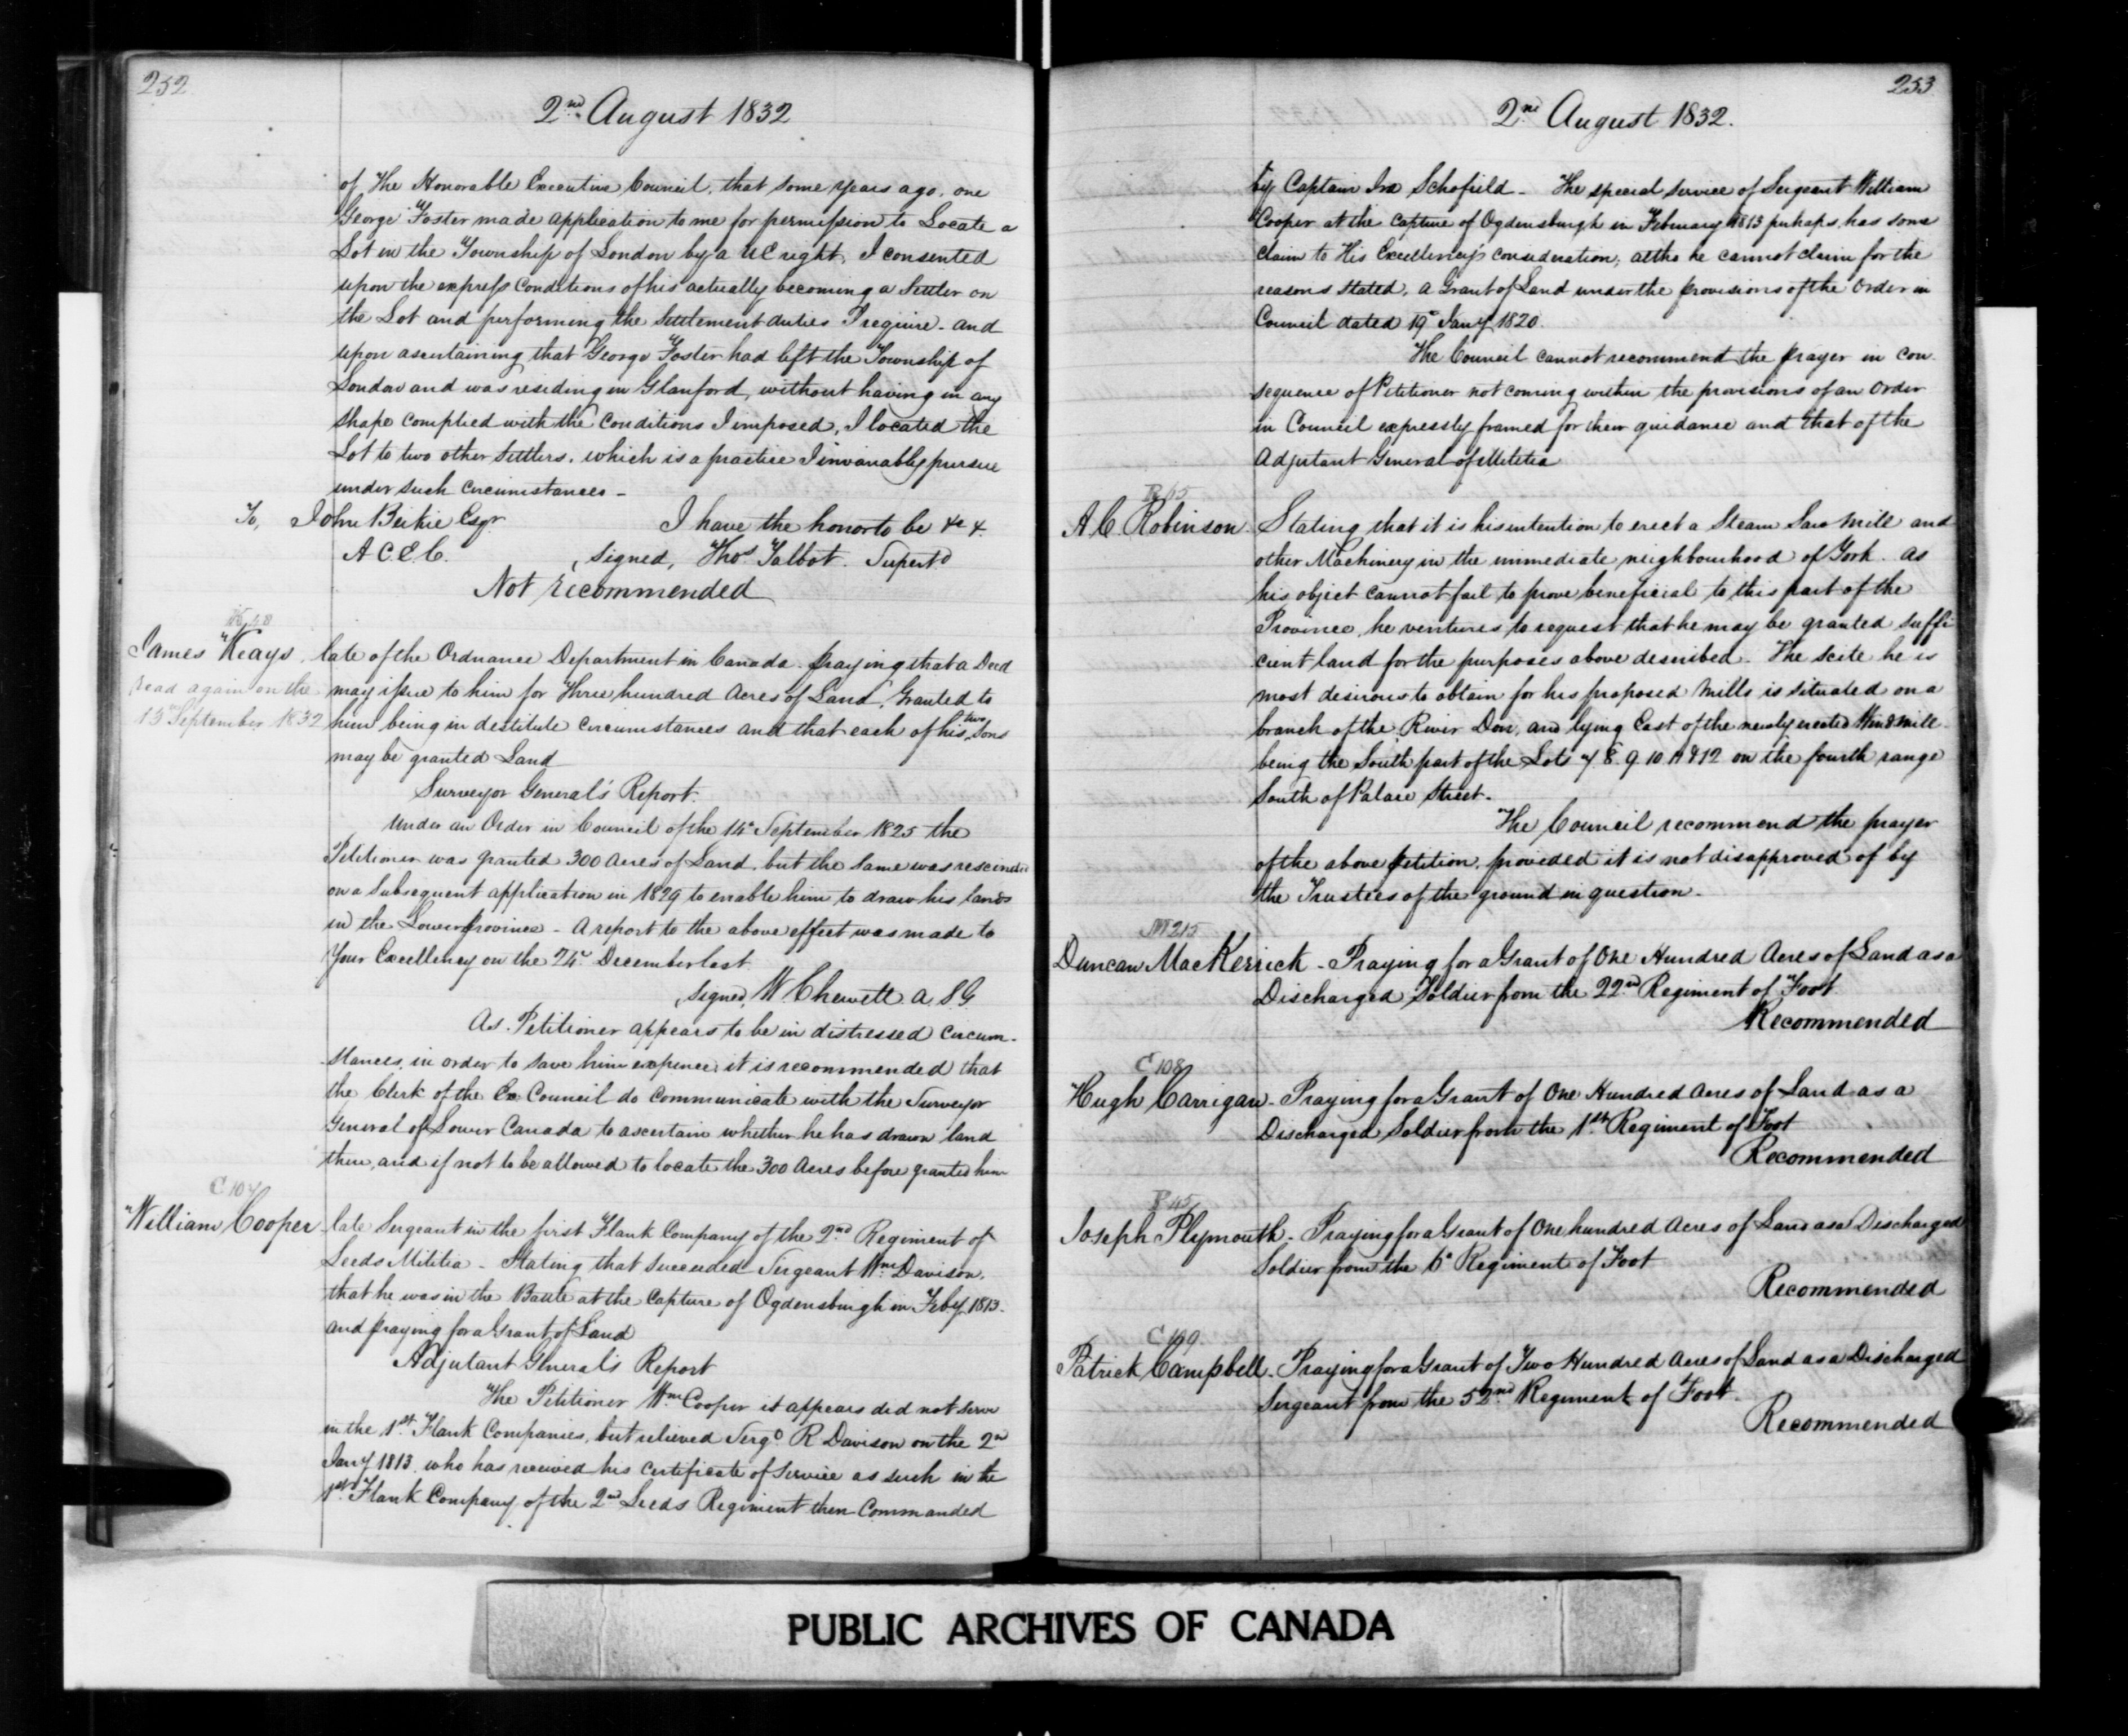 252
2nd August 1832
of the Honorable Executive Council, that some years ago, one
George Foster made application to me for permission to Locate a
Lot in the Township of London by a UE right, I consented
upon the express Conditions of his actually becoming a Settler on
the Lot and performing the Settlement duties I require - and
upon ascertaining that George Foster had left the Township of
London and was residing in Glanford, without having in any
shape complied with the Conditions I imposed, I located the
Lot to two other Settlers, which is a practice I invariably pursue
under such Circumstances -
To, John Beikie Esqr I have the honor to be &c &.
A C E C. signed, Thos Talbot. Supertd
Not recommended
James Keays, late of the Ordnance Department in Canada. praying that a Deed
read again on the may issue to him for Three hundred Acres of Land, Granted to
13 September 1832 him being in destitute circumstances and that each of his two Sons
may be granted Land
Surveyor General's Report.
Under an Order in Council of the 14th September 1825 the
Petitioner was granted 300 Acres of Land, but the same was rescinded
on a Subsequent application in 1829 to enable him to draw his lands
in the Lower province - A report to the above effect was made to
Your Excellency on the 24th December last
signed, W Chewett A. S G
As Petitioner appears to be in distressed Circum-
stances, in order to save him expence, it is recommended that
the Clerk of the Ex Council do communicate with the Surveyor
General of Lower Canada to ascertain whether he has drawn land
there, and if not to be allowed to locate the 300 Acres before granted him
C 107
William Cooper - late Sergeant in the first Flank Company of the 2nd Regiment of
Leeds Militia - Stating that succeeded Sergeant Wm Davison,
that he was in the Battle at the Capture of Ogdensburgh in Feby 1813.
and praying for a Grant of Land
Adjutant General's Report
The Petitioner Wm Cooper it appears did not serve
in the 1st Flank Companies, but relieved Sergt R Davison on the 2nd
Jany 1813. who has received his Certificate of Service as such in the
1st Flank Company of the 2nd Leeds Regiment then Commanded
253
2nd August 1832.
by Captain Ira Schofield - The special service of Sergeant William
Cooper at the Capture of Ogdensburgh in February 1813 perhaps, has some
claim to His Excellency's consideration, altho he cannot claim for the
reasons stated, a Grant of Land under the provisions of the Order in
Council dated 19th Jany 1820.
The Council cannot recommend the prayer in con-
sequence of Petitioner not coming within the provisions of an Order
in Council expressly framed for their guidance and that of the
Adjutant General of Militia
A C Robinson. Stating that it is his intention to erect a Steam Saw Mill and
other Machinery in the immediate neighbourhood of York. as
his object cannot fail to prove beneficial to this part of the
Province, he ventures to request that he may be granted suffi
cient land for the purposes above described - The scite he is
most desirous to obtain for his proposed Mills is situated on a
branch of the River Don, and lying East of the newly erected Windmill
being the South part of the Lots 7 8. 9. 10 11 & 12 on the fourth range
South of Palace Street.
The Council recommend the prayer
of the above petition, provided it is not disapproved of by
the Trustees of the ground in question.
M 215
Duncan MacKerrick - Praying for a Grant of One Hundred Acres of Land as a
Discharged Soldier from the 22nd Regiment of Foot
Recommended
C 108
Hugh Carrigan - Praying for a Grant of One Hundred Acres of Land as a
Discharged Soldier from the 1st Regiment of Foot
Recommended
P 45
Joseph Plymouth - Praying for a Grant of One hundred Acres of Land as a Discharged
Soldier from the 6th Regiment of Foot
Recommended
C 109
Patrick Campbell - Praying for a Grant of Two Hundred Acres of Land as a Discharged
Sergeant from the 52nd Regiment of Foot.
Recommended
PUBLIC ARCHIVES OF CANADA